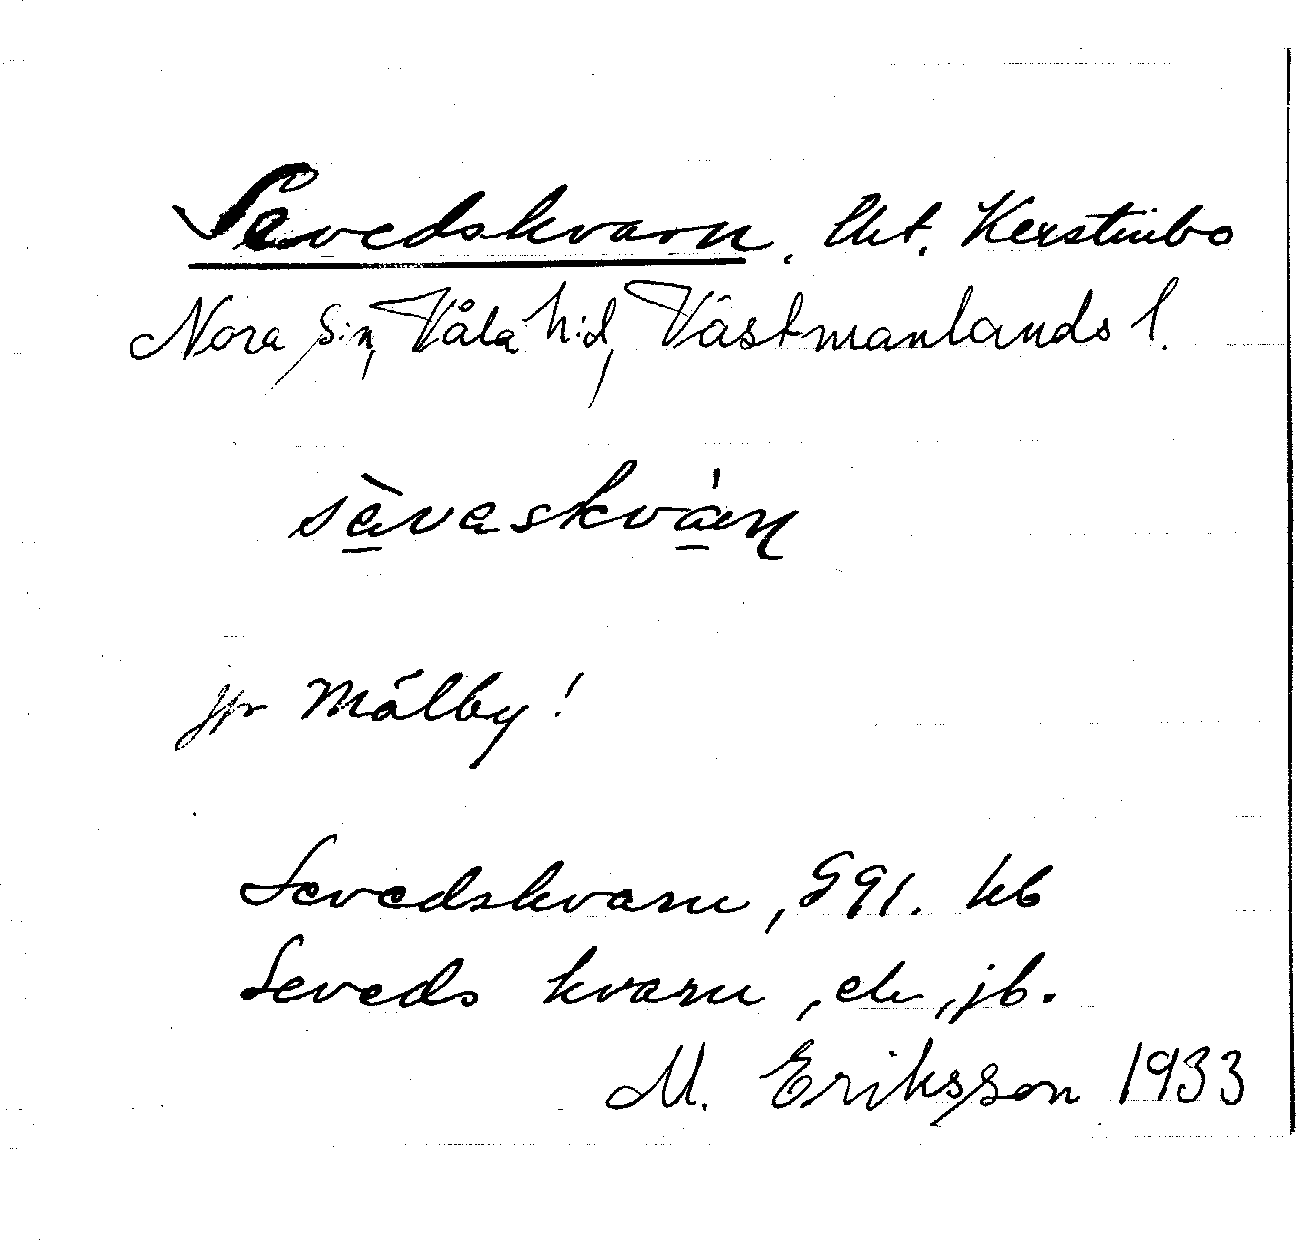 Sevedskvarn. Utt. Kerstinbo
Nora s:n, Våla h:d, Västmanlands l.
sèvaskván
jfr Målby!
Sevedskvarn, G 91. kb
Seveds kvarn, ek, jb.
M. Eriksson 1933